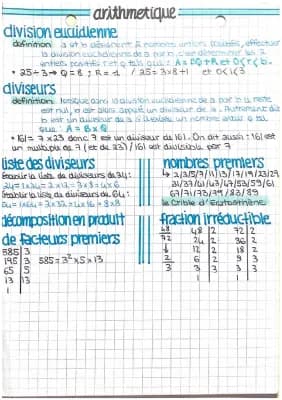 arithmétique
division euclidienne
définition: a et b désignent 2 nombres entiers positifs, effectuer
la division euclidienne de a par b c'est déterminer les 2
entiers positifs r et q tels que: A=BQ+R et O<r<b.
• 25÷3→Q=8; R=1 / 25=3×8+1 et O<1<3
diviseurs
définition: lorsque dans la division euclidienne de a par b le reste
est nul, on dit que b est un diviseur de a. Autrement dit
b est un diviseur de a s'il existe un nombre entier q tel
que: A=B×Q
• 161=7×23 donc 7 est un diviseur de 161. On dit aussi: 161 est
un multiple de 7 (et de 23) / 161 est divisible par 7
liste des diviseurs
la liste de diviseurs de 24:
24=1×24=2×12=3×8=4×6
la liste de diviseurs de 64:
64=1×64=2×32=4×16=8×8
nombres premiers
2/3/5/7/11/13/17/19/23/29
31/37/41/43/47/53/59/61
67/71/73/79/83/89
le Crible d'Eratosthène
décomposition en produit
de facteurs premiers
585 3
195 3 585=3²×5×13
65 5
13 13
1
fraction irréductible
48 48 2 72 2
72 24 2 36 2
12 2 18 2
2 6 2 9 3
3 3 3 3 3
1 1